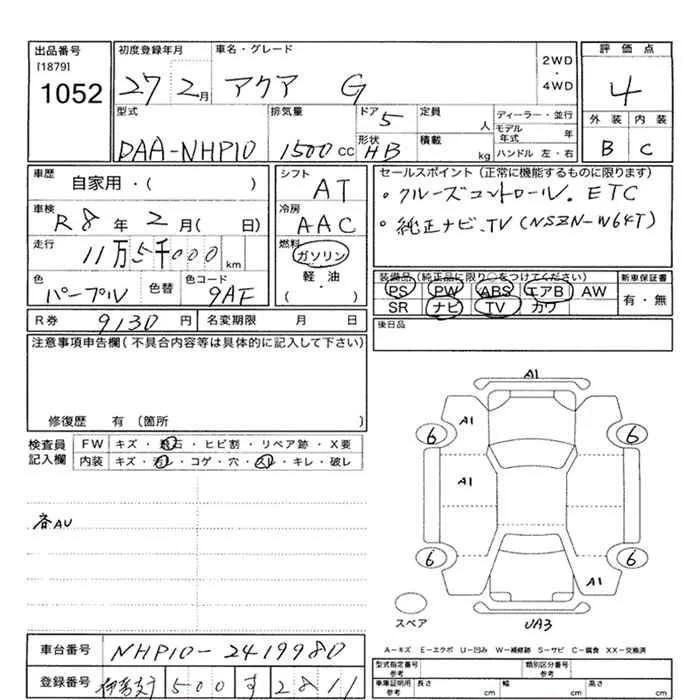 出品番号
[1879]
1052
初度登録年月
27 2月
車名・グレード
アクア G
2WD
・
4WD
評価点
4
外装 内装
B C
型式
DAA-NHP10
排気量
1500 cc
ドア 5
形状 HB
定員 人
積載 kg
ディーラー・並行
モデル年式 年
ハンドル 左・右
車歴 自家用・( )
車検 R8年 2月( 日)
走行 11万5千000 km
色 パープル
色替
色コード 9AF
シフト AT
冷房 AAC
燃料 ガソリン
軽・油
( )
セールスポイント(正常に機能するものに限ります)
・クルーズコントロール. ETC
・純正ナビ.TV(NSZN-W64T)
装備品(純正品に限り○をつけてください)
PS PW ABS エアB AW
SR ナビ TV カワ
新車保証書
有・無
後日品
R券 9130円
名変期限 月 日
注意事項申告欄(不具合内容等は具体的に記入して下さい)
修復歴 有(箇所 )
検査員記入欄
FW キズ・飛石・ヒビ割・リペア跡・X要
内装 キズ・汚レ・コゲ・穴・スレ・キレ・破レ
各AU
A1
A1
6 6
A1
6 6
A1
スペア
UA3
A-キズ E-エクボ U-凹み W-補修跡 S-サビ C-腐食 XX-交換済
車台番号 NHP10-2419980
登録番号 500 す 2811
型式指定番号
参考
類別区分番号
参考
車庫証明用
参考
長さ cm
幅 cm
高さ cm